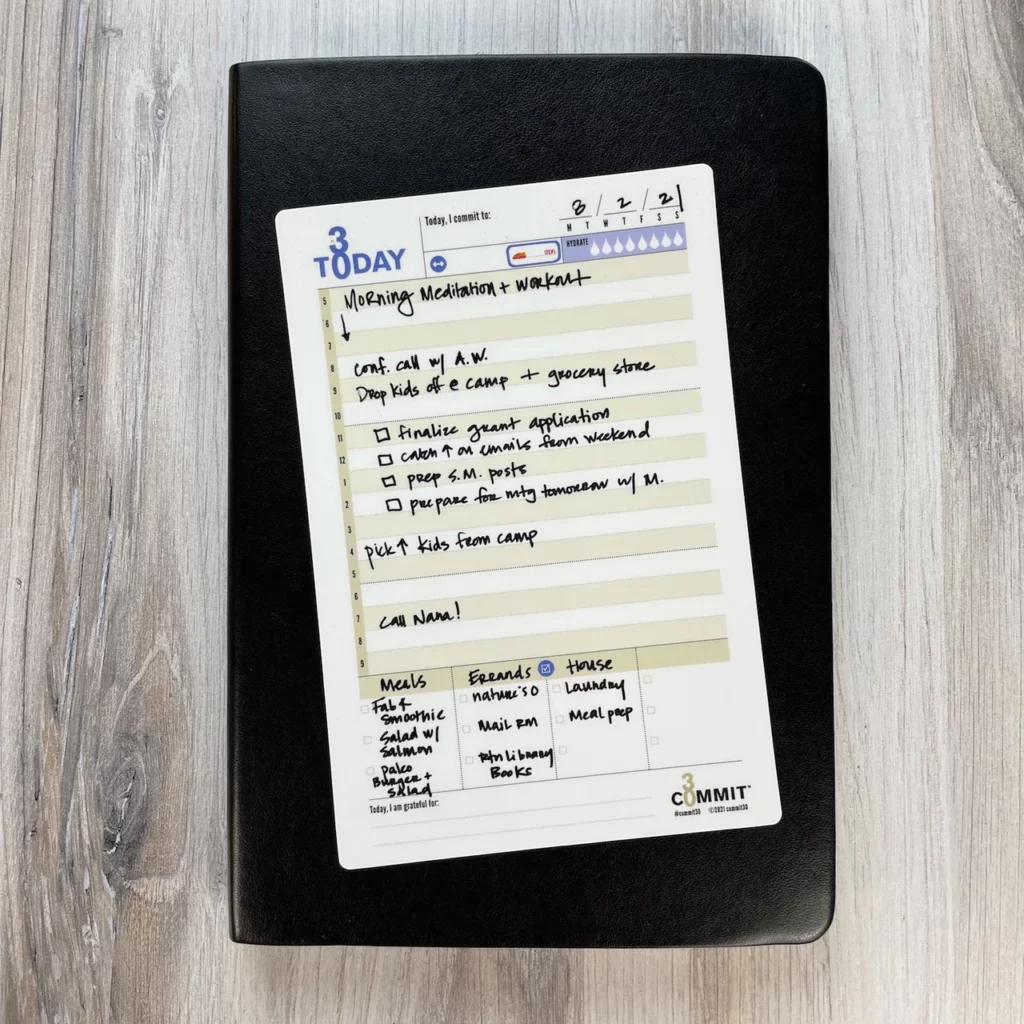 Today, I commit to:
8 / 2 / 21
M T W T F S S
30 TODAY
STEPS
HYDRATE
5 Morning Meditation + workout
6 ↓
7
8 conf. call w/ A.W.
9 Drop kids off @ camp + grocery store
10
11 □ finalize grant application
12 □ catch ↑ on emails from weekend
1 □ prep S.M. posts
2 □ prepare for mtg tomorrow w/ M.
3
4 pick ↑ kids from camp
5
6
7 call Nana!
8
9
Meals
Fab 4
Smoothie
Salad w/
Salmon
Paleo
Burger +
Salad
Errands
nature's O
Mail RM
Rtn Library
Books
House
Laundry
Meal prep
Today, I am grateful for:
COMMIT30
#commit30 ©2021 commit30